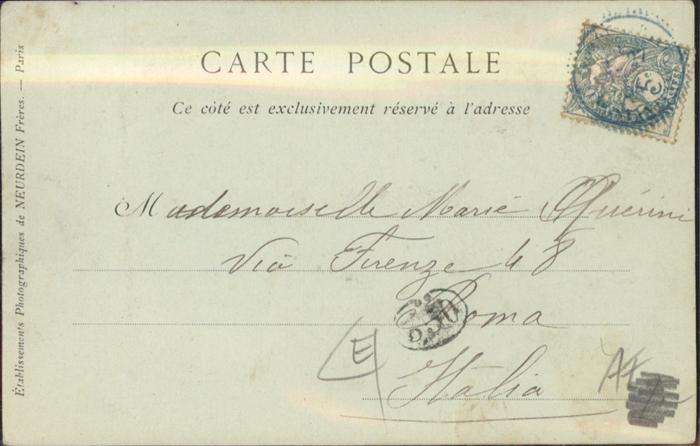 CARTE POSTALE
Ce côté est exclusivement réservé à l'adresse
Mademoiselle Marie Quérini
Via Firenze 48
Roma
Italia
Établissements Photographiques de NEURDEIN Frères. — Paris
E